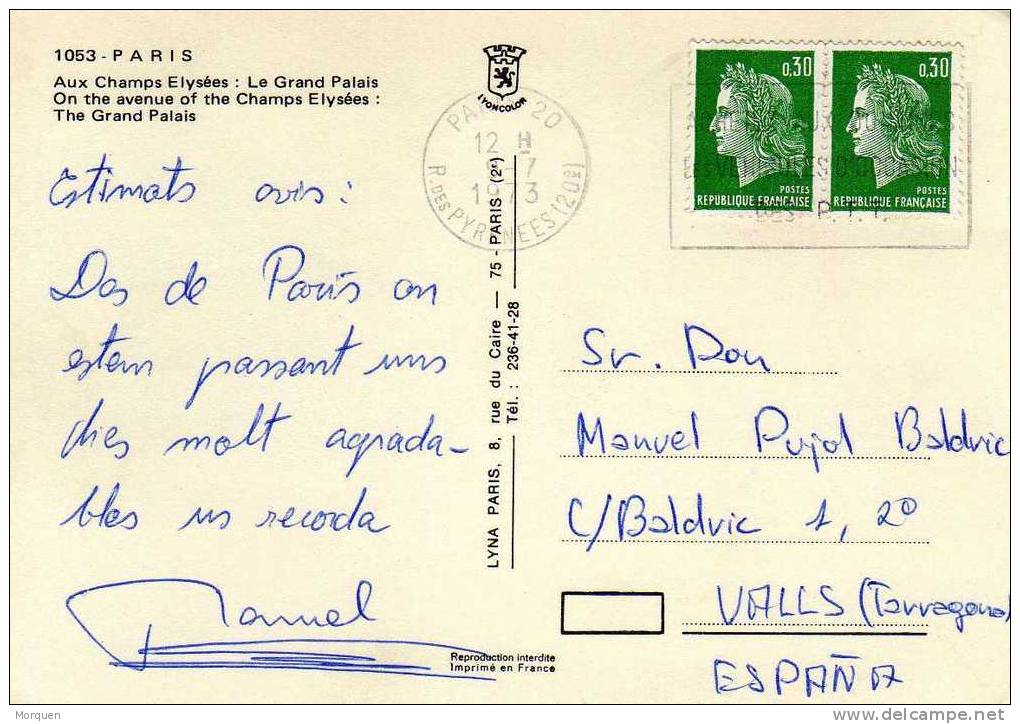 1053 - PARIS
Aux Champs Elysées : Le Grand Palais
On the avenue of the Champs Elysées :
The Grand Palais
LYONCOLOR
PARIS 20
12 H
-7
1973
R. DES PYRENEES (20E)
0,30
POSTES
REPUBLIQUE FRANÇAISE
0,30
POSTES
REPUBLIQUE FRANÇAISE
P.T.T.
Estimats avis :
Des de Paris on
estem passant uns
dies molt agrada-
bles us recorda
Manuel
LYNA PARIS, 8, rue du Caire — 75 - PARIS (2e)
Tél. : 236-41-28
Sr. Don
Manuel Pujol Baldric
C/Baldric 1, 2º
VALLS (Tarragona)
ESPAÑA
Reproduction interdite
Imprimé en France
Morquen
delcampe.net